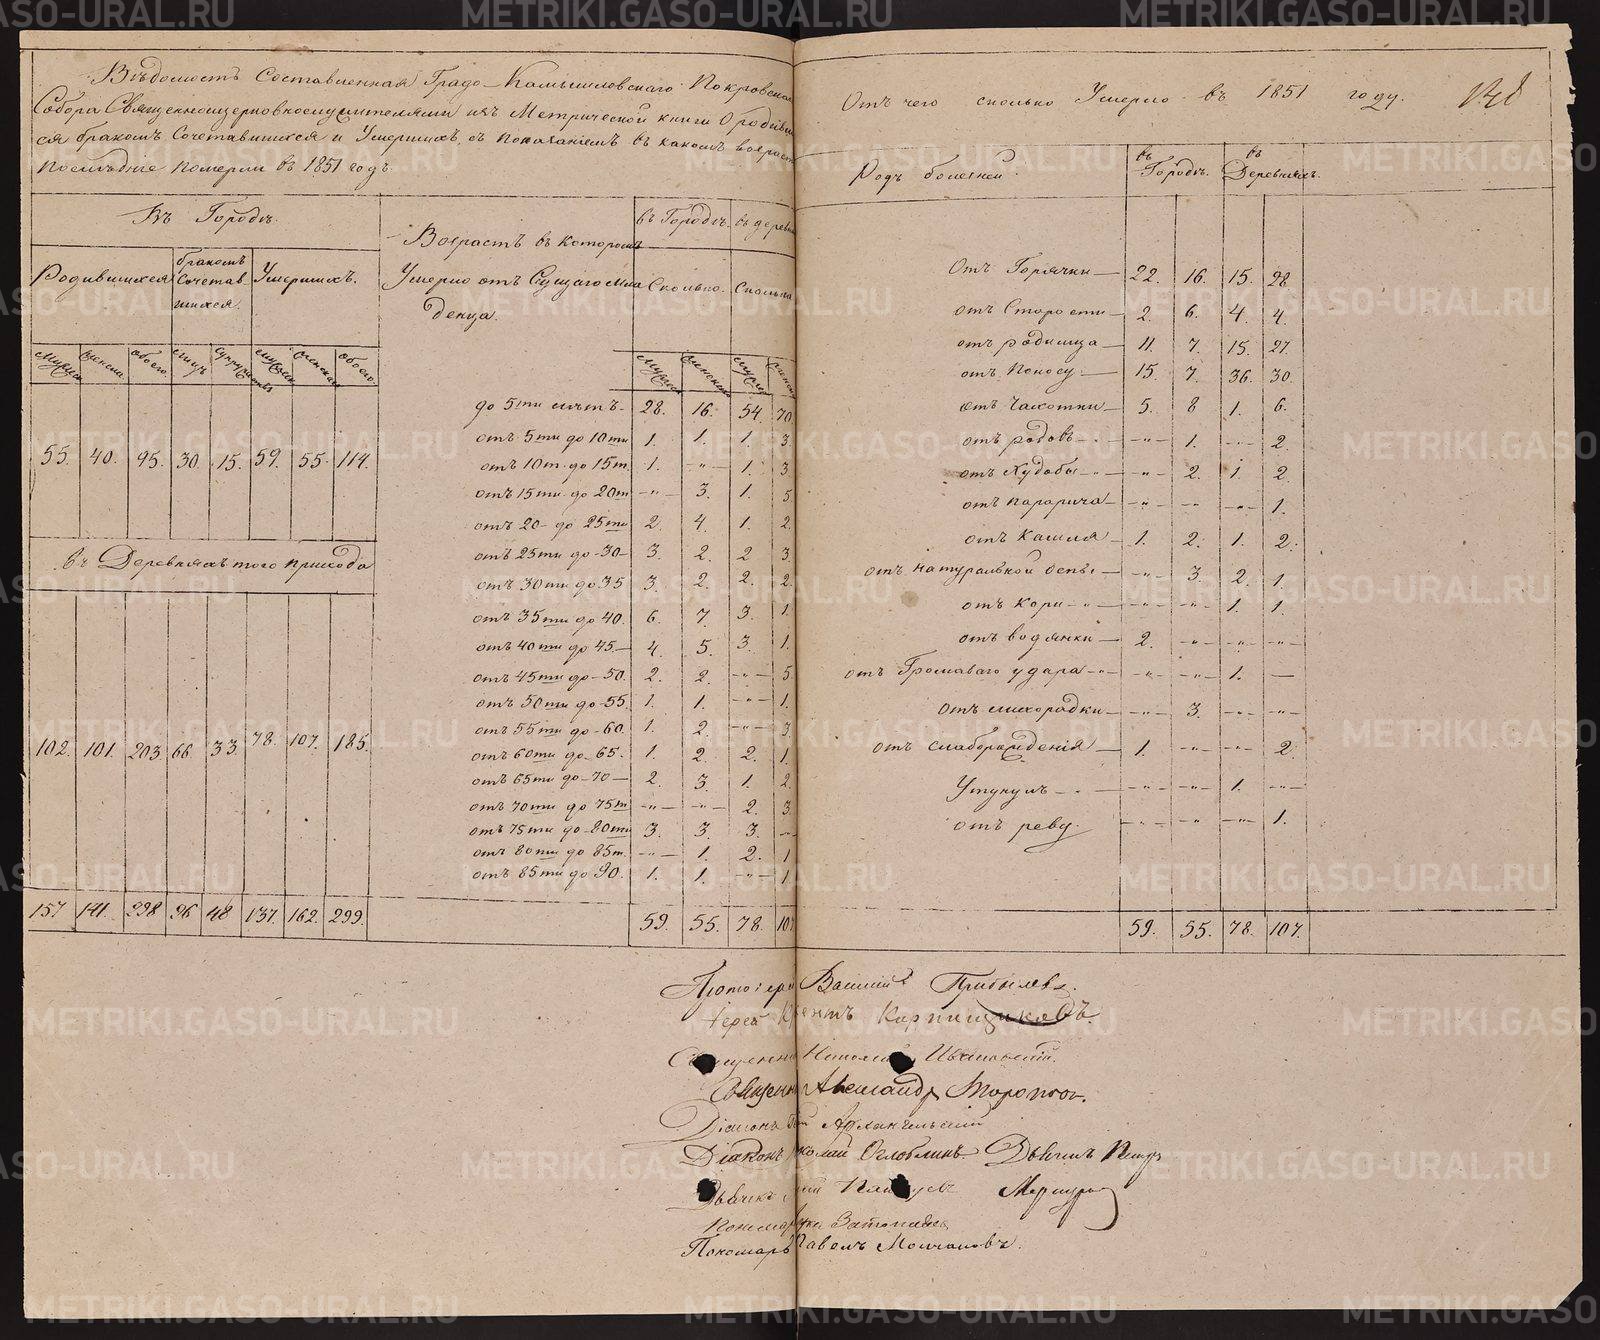 Вѣдомость Составленная Градо-Камышловскаго Покровскаго
Собора Священноцерковнослужителями изъ Метрической книги О родивших
ся бракомъ Сочетавшихся и Умершихъ съ показаніемъ въ какомъ возрастѣ
последніе померли въ 1851 годѣ.
Въ Городѣ.
Родившихся
бракомъ Сочетав-шихся.
Умершихъ.
Возрастъ въ которомъ
Умерло отъ Сущаго Мла
денца.
въ Городѣ. въ деревн
Сколько. Сколько
мужеск женска. обоего. лицъ супружествъ мужеск женскаго обоего.
мужеск женскаго мужеск женск
55. 40. 95. 30. 15. 59. 55. 114.
въ Деревняхъ того прихода
102. 101. 203. 66. 33. 78. 107. 185.
157 141. 298 96 48 137. 162. 299.
до 5ти лѣтъ- 28. 16. 54. 70
отъ 5ти до 10ти 1. 1. 1. 3
отъ 10т. до 15т. 1. -"- 1. 3
отъ 15ти до 20т -"- 3. 1. 5
отъ 20- до 25ти 2. 4. 1. 2.
отъ 25ти до -30- 3. 2. 2 3
отъ 30ти до 35 3. 2. 2. 2.
отъ 35ти до 40. 6. 7. 3. 1.
отъ 40ти до 45.- 4. 5. 3. 1.
отъ 45ти до -50. 2. 2. -"- 5
отъ 50ти до -55. 1. 1. -"- 1.
отъ 55ти до -60. 1. 2. -"- 3.
отъ 60ти до -65. 1. 2. 2. 1.
отъ 65ти до -70- 2. 3. 1. 2.
отъ 70ти до 75т -"- -"- 2. 3
отъ 75ти до -80ти 3. 3. 3. -"-
отъ 80ти до 85т. -"- 1. 2. 1
отъ 85ти до 90. 1. 1. -"- 1
59. 55. 78. 107
Отъ чего сколько Умерло въ 1851 году.
148
Родъ болезней.
въ Городѣ. въ Деревняхъ.
Отъ Горячки- 22. 16. 15. 28.
отъ Старости- 2. 6. 4. 4.
отъ родимца- 11. 7. 15. 27.
отъ Поносу- 15. 7. 36. 30.
отъ Чахотки- 5. 8 1. 6.
отъ родовъ- -"- 1. -"- 2.
отъ Худобы- -"- 2. 1. 2.
отъ паралича- -"- -"- -"- 1.
отъ Кашля- 1. 2. 1. 2.
отъ натуральной оспы- -"- 3. 2. 1.
отъ Кори- -"- -"- 1. 1.
отъ водянки- 2. -"- -"- -"-
отъ Громаваго удара- -"- -"- 1. -
отъ лихорадки- -"- 3. -"- -"-
отъ слаборожденія- 1. -"- -"- 2.
Утунулъ- -"- -"- 1. -"-
отъ реву. -"- -"- -"- 1.
59. 55. 78. 107.
Протоіерей Василій Прибылевъ.
Іерей Климентъ Карпинскихъ.
Священникъ Николай Ивановскій.
Священникъ Александръ Топорковъ.
Діаконъ Архангельскій
Діаконъ Николай Оглоблинъ. Дьячекъ Петръ
Меркурьевъ
Дьячекъ
Пономарь
Пономарь Павелъ Молчановъ.
METRIKI.GASO-URAL.RU